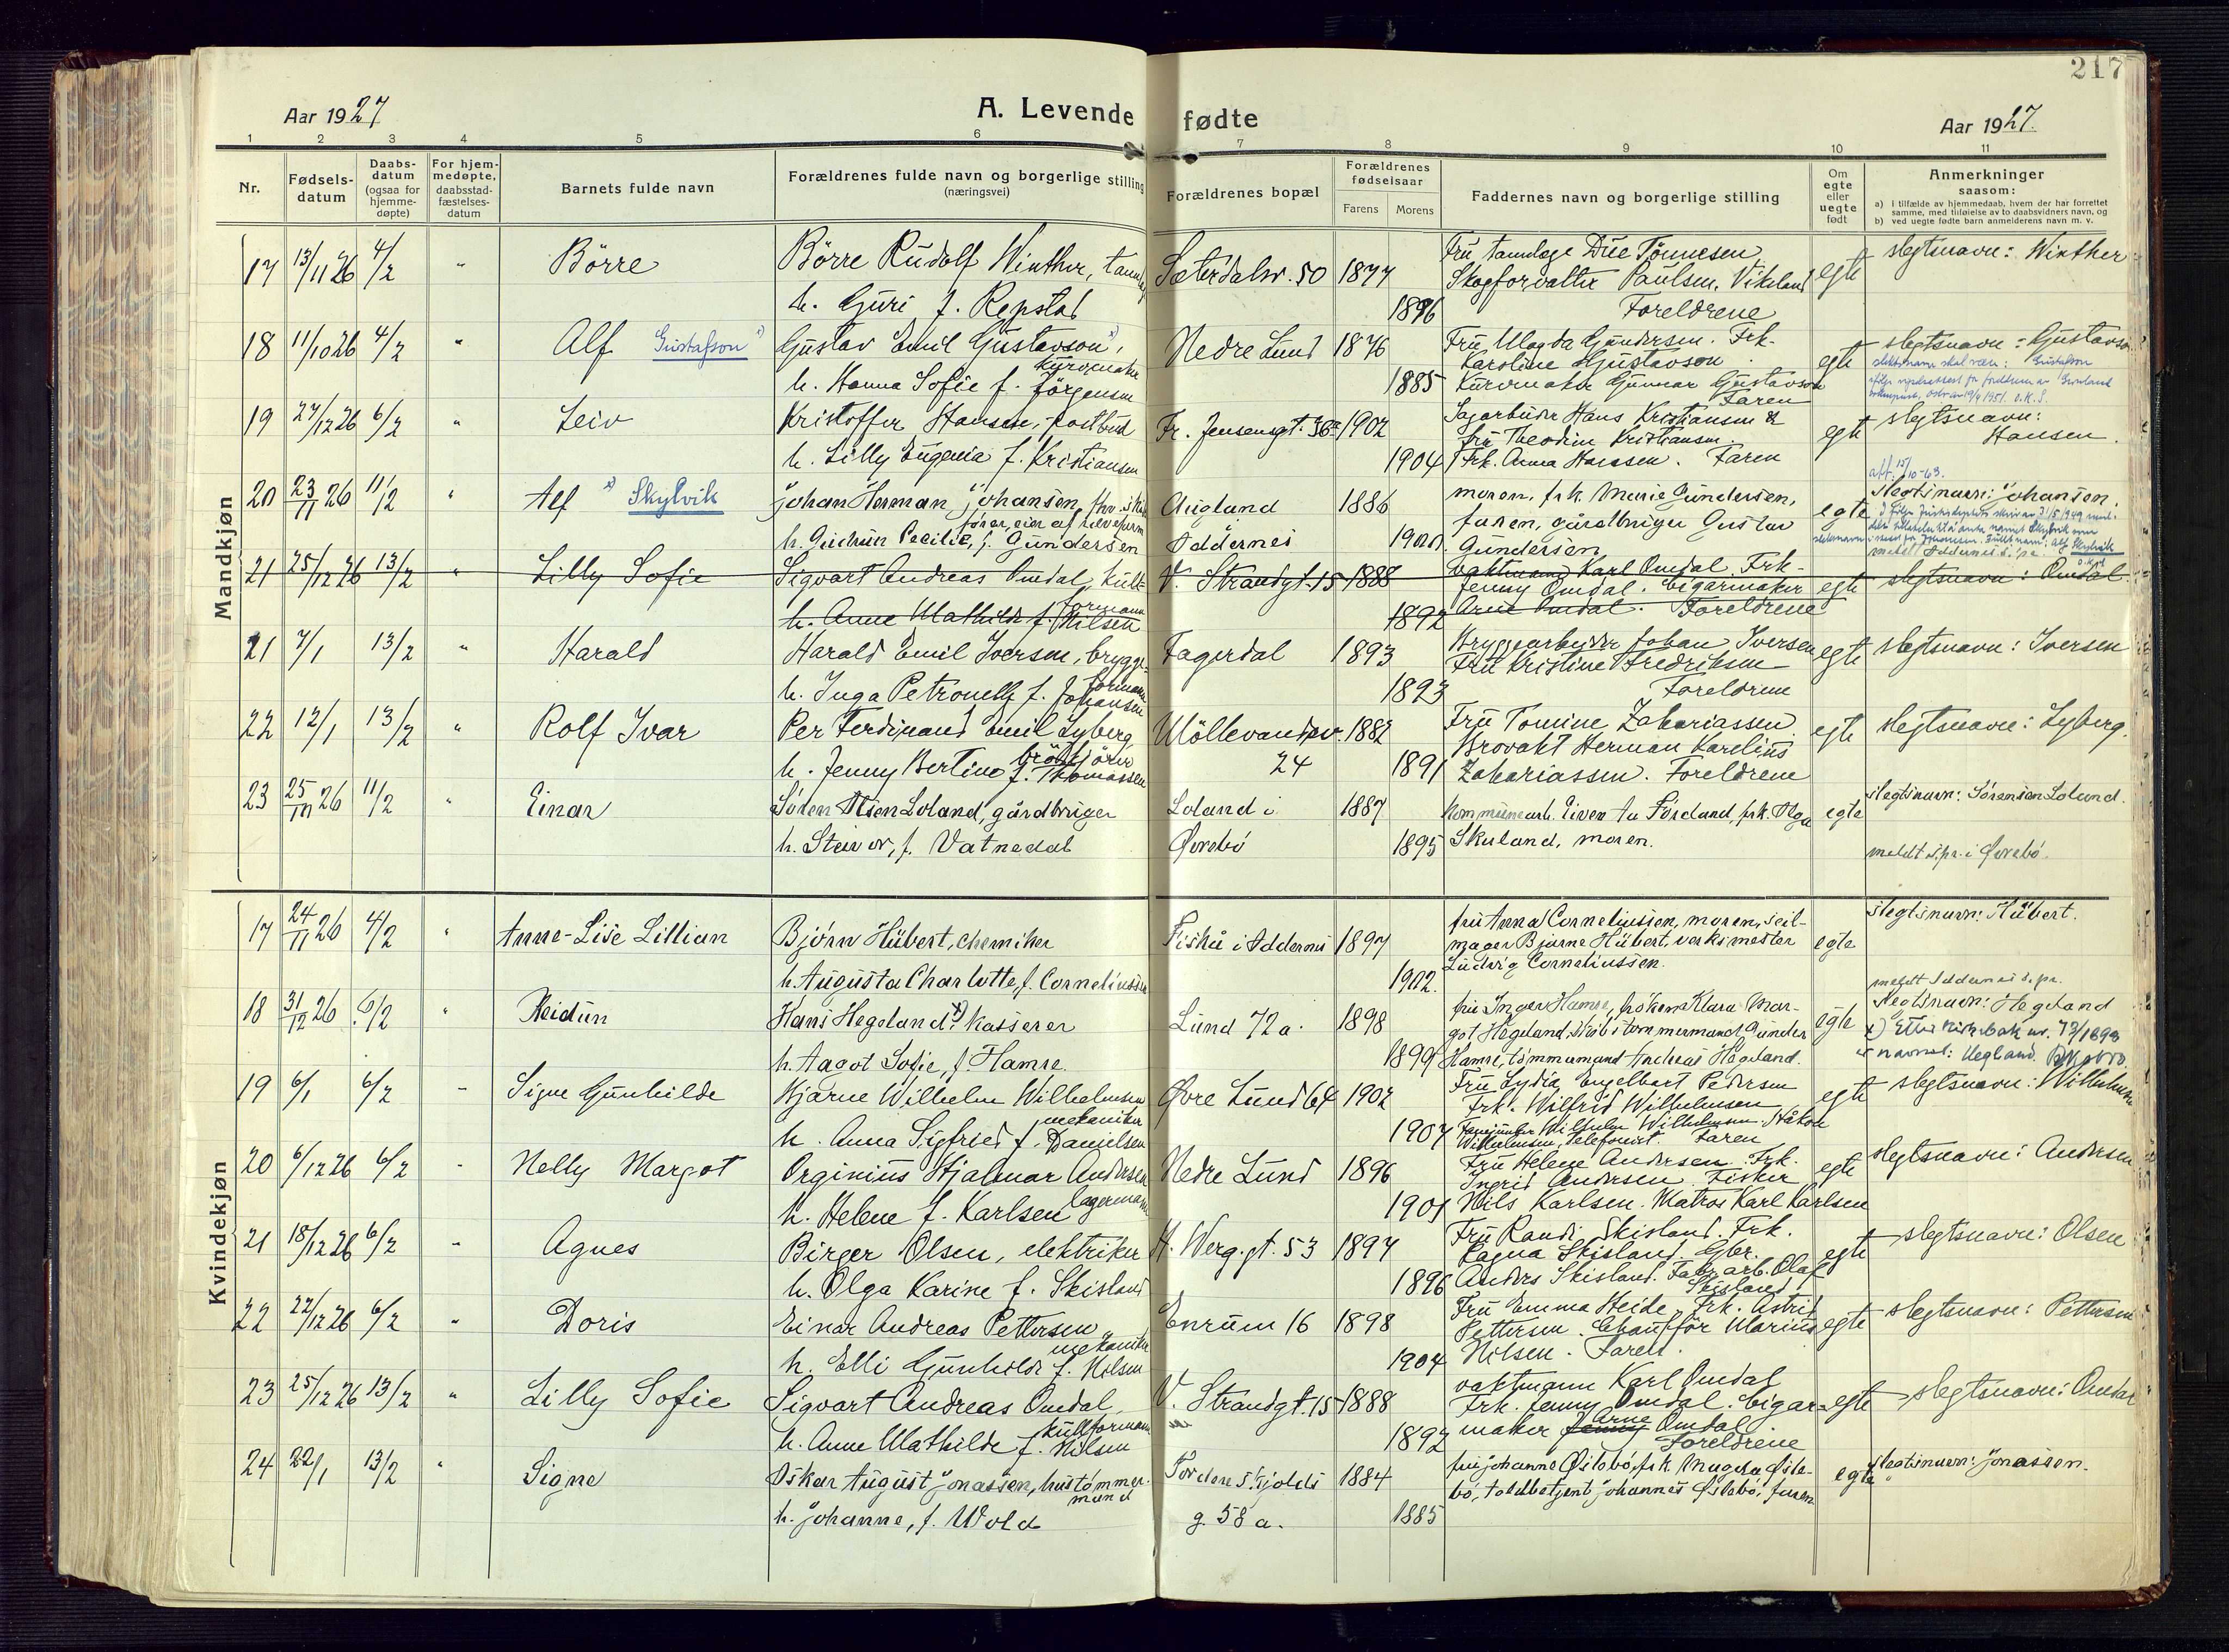 217
Aar 1927
A. Levende fødte
Aar 1927.
1 2 3 4 5 6 7 8 9 10 11
Nr.
Fødsels-
datum
Daabs-
datum
(ogsaa for
hjemme-
døpte)
For hjem-
medøpte,
daabsstad-
fæstelses-
datum
Barnets fulde navn
Forældrenes fulde navn og borgerlige stilling
(næringsvei)
Forældrenes bopæl
Forældrenes
fødselsaar
Farens Morens
Faddernes navn og borgerlige stilling
Om
egte
eller
uegte
født
Anmerkninger
saasom:
a) I tilfælde av hjemmedaab, hvem der har forrettet
samme, med tilføielse av to daabsvidners navn, og
b) ved uegte fødte barn anmelderens navn m. v.
Mandkjøn
17 13/11 26 4/2 " Börre Börre Rudolf Winther, Sæterdalsv. 50 1877 Fru tannlæge Due Tönnesen egte slegtsnavn: Winther
Skogforvalter Paulsen, Vikeland
h. Guri f. Repstad 1896 Foreldrene
18 11/10 26 4/2 " Alf Gustafson x) Gustav Emil Gustavson x), Nedre Lund 1876 Fru Magda Gundersen. Frk. egte slegtsnavn: Gustavson
kurvmaker Karoline Gustavson.
h. Hanna Sofie f. Jörgensen 1885 Kurvmaker Gunnar Gustavson
Faren
slektsnavn skal være: Gustafson
19 27/12 26 6/2 " Leiv Kristoffer Hansen, postbud Fr. Jensensgt. 36a 1902 Sagarbeider Hans Kristiansen & egte slegtsnavn:
fru Theodine Kristiansen. Hansen.
h. Lilly Eugenia f. Kristiansen 1904 Frk. Anna Hanssen. Faren
att. 15/10-63.
20 23/11 26 11/2 " Alf x) Skylvik Johan Herman Johansen, Augland 1886 moren, frk. Marie Gundersen, egte Slegtsnavn: Johansen.
faren, gårdbruger Gustav
h. Gudrun Cecilie, f. Gundersen Oddernes 1900. Gundersen
meldt Oddernes s. pr.
21 25/12 26 13/2 " Lilly Sofie Sigvart Andreas Omdal, kull- V. Strandgt. 15 1888 Vaktmann Karl Omdal. Frk. egte slegtsnavn: Omdal.
formann Jenny Omdal. Cigarmaker
h. Anne Mathilde f. Nilsen 1892 Arne Omdal. Foreldrene
21 7/1 13/2 " Harald Harald Emil Iversen, brygge- Fagerdal 1893 Bryggearbeider Johan Iversen egte slegtsnavn: Iversen
formann Fru Kristine Fredriksen
h. Inga Petronelle f. Johansen 1893 Foreldrene
22 12/1 13/2 " Rolf Ivar Per Ferdinand Emil Lyberg, Möllevandsv. 1882 Fru Tomine Zakariassen egte slegtsnavn: Lyberg.
Brovakt Herman Karelius
h. Jenny Bertine f. Thomassen 24 1891 Zakariassen. Foreldrene
23 25/11 26 11/2 " Einar Søren Olsen Loland, gårdbruger Loland i 1887 Kommunearb. Even Aa Förland, frk. Olga egte Slegtsnavn: Sørensen Loland.
h. Steinvor, f. Vatnedal Øvrebö 1895 Skuland, moren. meldt s. pr. i Øvrebö.
Kvindekjøn
17 24/11 26 4/2 " Anne-Lise Lillian Bjørn Hübert, chemiker Fiskå i Oddernes 1897 fru Anna Corneliussen, moren, seil- egte Slegtsnavn: Hübert.
mager Bjarne Hübert, verksmester
h. Augusta Charlotte, f. Corneliussen 1902. Ludvig Corneliussen. meldt Oddernes s. pr.
18 31/12 26 6/2 " Reidun Hans Hegeland x) kasserer Lund 72a. 1898 fru Inger Hamre, frøkene Klara Mar- egte Slegtsnavn: Hegeland
got Hegeland, Skibstømmermand Gunder x) Etter kirkebok nr. 73/1898
h. Aagot Sofie, f. Hamre. 1899 Hamre, tømmermand Andreas Hegeland. er navnet: Hegland.
19 6/1 6/2 " Signe Gunhilde Bjarne Wilhelm Wilhelmsen Øvre Lund 64 1902 Fru Lydia Engelbart Pedersen egte slegtsnavn: Wilhelmsen
mekaniker Frk. Wilfrid Wilhelmsen
h. Anna Sigfried f. Danielsen 1907 Wilhelm Wilhelmsen. Håkon
Wilhelmsen, telefonist. Faren
20 6/12 26 6/2 " Nelly Margot Orginius Hjalmar Andersen Nedre Lund 1896 Fru Helene Andersen. Frk. egte slegtsnavn: Andersen
lagermann Ingrid Andersen. Fisker
h. Helene f. Karlsen 1901 Nils Karlsen. Matros Karl Karlsen
21 18/12 26 6/2 " Agnes Birger Olsen, elektriker H. Werg.gt. 53 1897 Fru Randi Skisland. Frk. egte slegtsnavn: Olsen
Ragna Skisland. Gbr.
h. Olga Karine f. Skisland 1896 Anders Skisland. Fabr. arb. Olaf
Skisland
22 27/12 26 6/2 " Doris Einar Andreas Pettersen Enrum 16 1898 Fru Emma Heide. Frk. Astrid egte slegtsnavn: Pettersen
mekaniker Pettersen. Chauffør Marius
h. Elli Gunhilde f. Nilsen 1904 Nilsen. Faren.
23 25/12 26 13/2 " Lilly Sofie Sigvart Andreas Omdal, V. Strandgt. 15 1888 vaktmann Karl Omdal egte slegtsnavn: Omdal
kullformann Frk. Jenny Omdal. Cigar-
h. Anne Mathilde f. Nilsen 1892 maker Jenny Arne Omdal
Foreldrene
24 22/1 13/2 " Signe Oskar August Jonassen, hustømmer- Tordenskjolds 1884 fru Johanne Øilebö, frk. Magda Øile- egte Slegtsnavn: Jonassen.
mand bö, toldbetjent Johannes Øilebö, faren
h. Johanne, f. Wold g. 58a. 1885